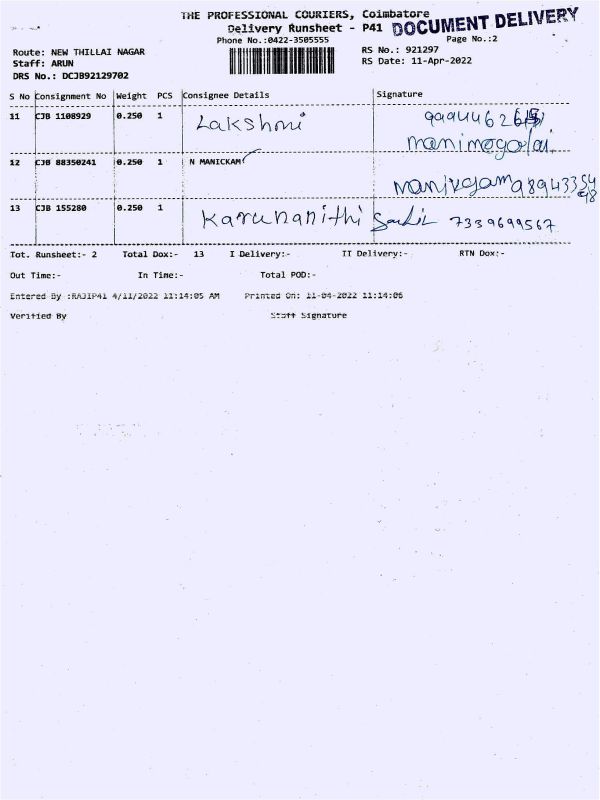 THE PROFESSIONAL COURIERS, Coimbatore
Delivery Runsheet - P41
DOCUMENT DELIVERY
Phone No.:0422-3505555
Page No.:2
Route: NEW THILLAI NAGAR
RS No.: 921297
Staff: ARUN
RS Date: 11-Apr-2022
DRS No.: DCJB92129702
S No Consignment No Weight PCS Consignee Details Signature
11 CJB 1108929 0.250 1 Lakshmi
manimegalai
12 CJB 88350241 0.250 1 N MANICKAM
13 CJB 155280 0.250 1 Karunanithi 7339699567
Tot. Runsheet:- 2 Total Dox:- 13 I Delivery:- II Delivery:- RTN Dox:-
Out Time:- In Time:- Total POD:-
Entered By :RAJIP41 4/11/2022 11:14:05 AM Printed On: 11-04-2022 11:14:06
Verified By Staff Signature